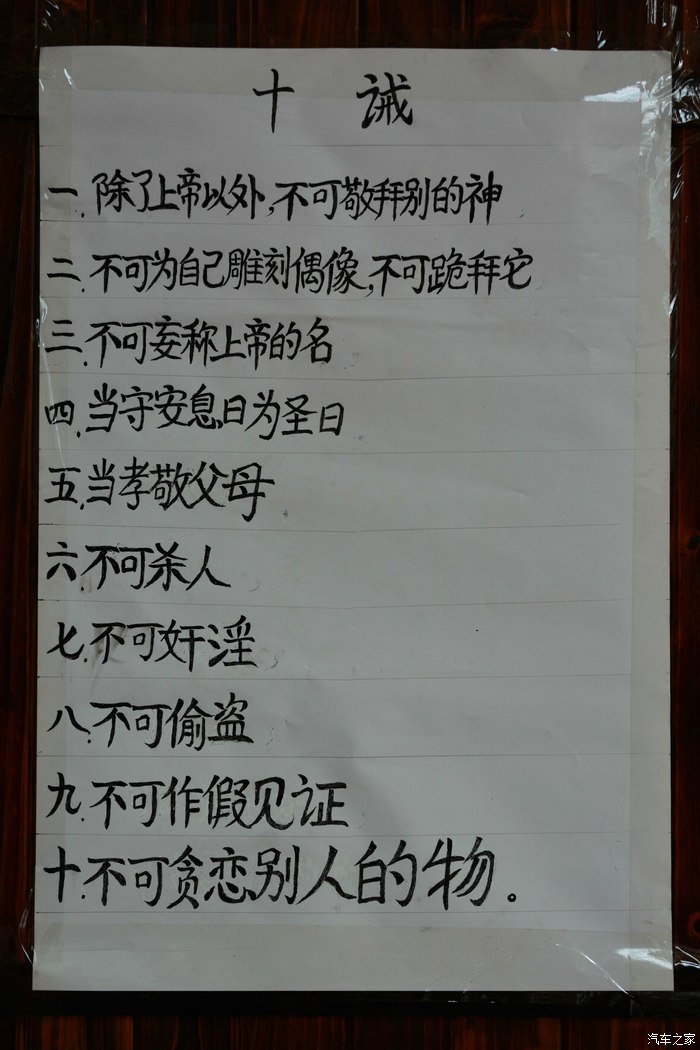 十 诫
一.除了上帝以外,不可敬拜别的神
二.不可为自己雕刻偶像,不可跪拜它
三.不可妄称上帝的名
四.当守安息日为圣日
五.当孝敬父母
六.不可杀人
七.不可奸淫
八.不可偷盗
九.不可作假见证
十.不可贪恋别人的物。
汽车之家